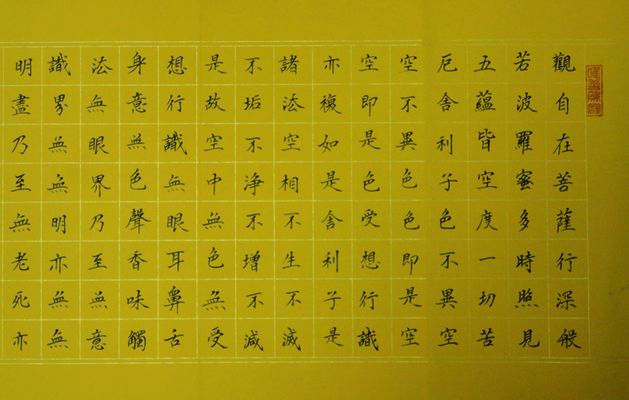 觀自在菩薩行深般
若波羅蜜多時照見
五蘊皆空度一切苦
厄舍利子色不異空
空不異色色即是空
空即是色受想行識
亦複如是舍利子是
諸法空相不生不滅
不垢不淨不增不減
是故空中無色無受
想行識無眼耳鼻舌
身意無色聲香味觸
法無眼界乃至無意
識界無無明亦無無
明盡乃至無老死亦